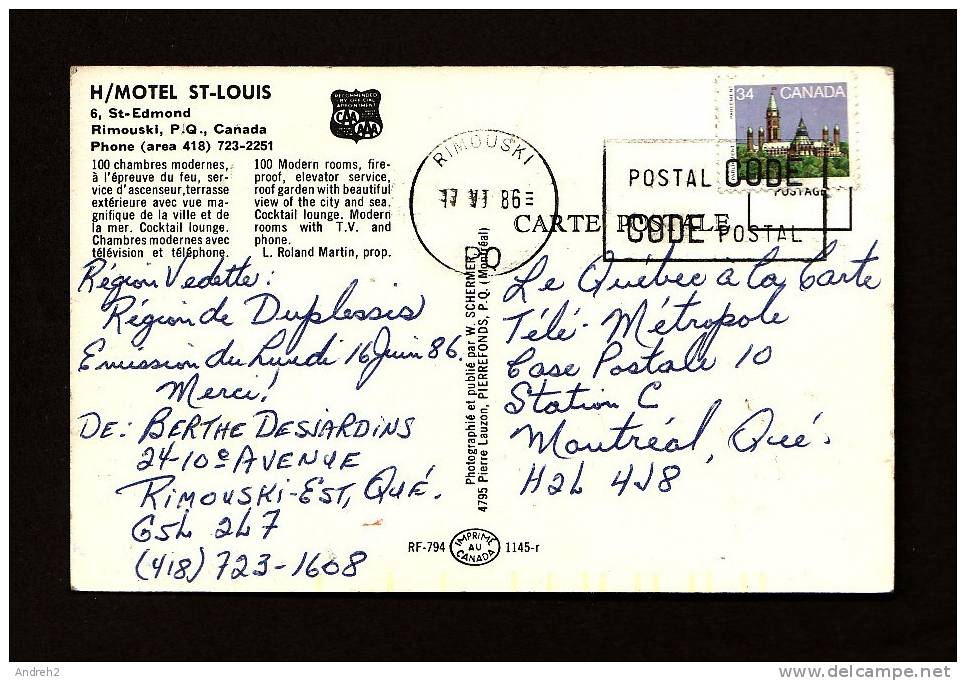 H/MOTEL ST-LOUIS
6, St-Edmond
Rimouski, P.Q., Canada
Phone (area 418) 723-2251
100 chambres modernes,
à l'épreuve du feu, ser-
vice d'ascenseur, terrasse
extérieure avec vue ma-
gnifique de la ville et de
la mer. Cocktail lounge.
Chambres modernes avec
télévision et téléphone.
100 Modern rooms, fire-
proof, elevator service,
roof garden with beautiful
view of the city and sea.
Cocktail lounge. Modern
rooms with T.V. and
phone.
L. Roland Martin, prop.
RECOMMENDED
BY OFFICIAL
APPOINTMENT
CAA
AAA
RIMOUSKI
17 VI 86
PQ
34 CANADA
POSTAGE
POSTAL CODE
CODE POSTAL
CARTE POSTALE
Région Vedette:
Région de Duplessis
Emission du Lundi 16 Juin 86.
Merci!
DE: BERTHE DESJARDINS
24-10e AVENUE
RIMOUSKI-EST, QUÉ.
G5L 2L7
(418) 723-1608
Photographié et publié par W. SCHERMER
4795 Pierre Lauzon, PIERREFONDS, P.Q. (Montréal)
Le Québec à la Carte
Télé-Métropole
Case Postale 10
Station C
Montréal, Qué.
H2L 4J8
RF-794
IMPRIMÉ
AU
CANADA
1145-r
Andreh2
www.delcampe.net